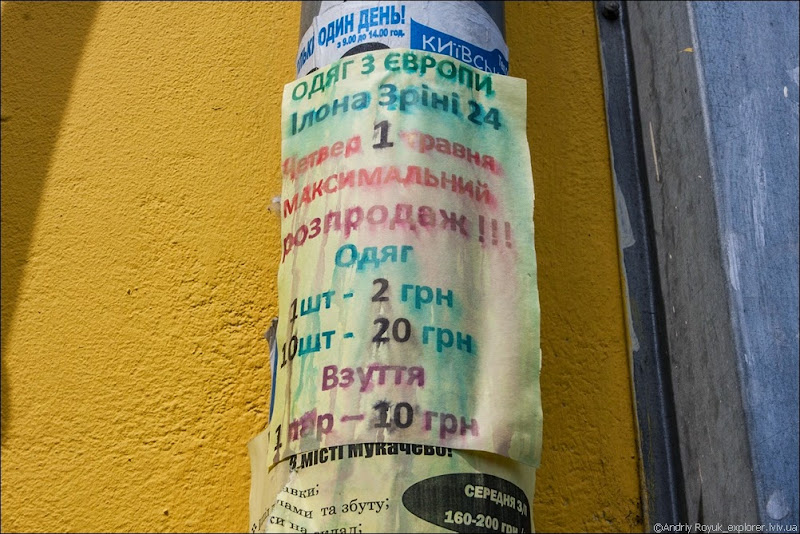 ОДИН ДЕНЬ!
з 9.00 до 14.00 год.
КИЇВСЬ
ОДЯГ З ЄВРОПИ
Ілона Зріні 24
Четвер 1 травня
МАКСИМАЛЬНИЙ
розпродаж !!!
Одяг
1шт - 2 грн
10шт - 20 грн
Взуття
1 пар – 10 грн
в місті Мукачево!
авки;
ами та збуту;
си на складі;
СЕРЕДНЯ З/П
160-200 грн
©Andriy Royuk_explorer.lviv.ua